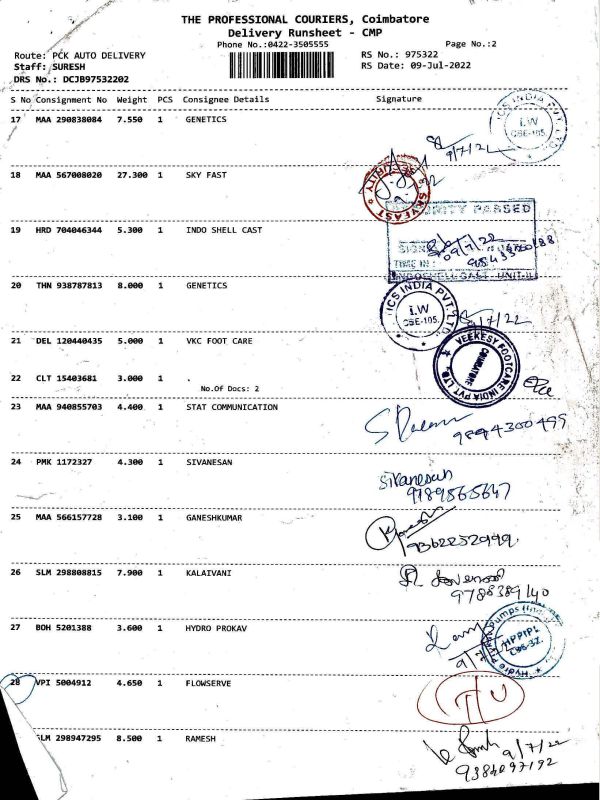 THE PROFESSIONAL COURIERS, Coimbatore
Delivery Runsheet - CMP
Phone No.:0422-3505555 Page No.:2
Route: PCK AUTO DELIVERY RS No.: 975322
Staff: SURESH RS Date: 09-Jul-2022
DRS No.: DCJB97532202
S No Consignment No Weight PCS Consignee Details Signature
17 MAA 290838084 7.550 1 GENETICS
ICS INDIA PVT. LTD
I.W
CBE-105.
9/7/22
18 MAA 567008020 27.300 1 SKY FAST
SKYFAST
19 HRD 704046344 5.300 1 INDO SHELL CAST
SECURITY PASSED
SIGN
09/7/22
TIME IN:
INDOSHELL CAST UNIT-II
20 THN 938787813 8.000 1 GENETICS
ICS INDIA PVT. LTD
I.W
CBE-105.
21 DEL 120440435 5.000 1 VKC FOOT CARE
VEEKESY FOOTCARE INDIA PVT LTD
COIMBATORE
22 CLT 15403681 3.000 1 .
No.Of Docs: 2
23 MAA 940855703 4.400 1 STAT COMMUNICATION
9894300499
24 PMK 1172327 4.300 1 SIVANESAN
Sivanesan
9789565647
25 MAA 566157728 3.100 1 GANESHKUMAR
9362252999
26 SLM 298808815 7.900 1 KALAIVANI
9788389140
27 BOH 5201388 3.600 1 HYDRO PROKAV
HPPIPL
CBE-32.
28 VPI 5004912 4.650 1 FLOWSERVE
SLM 298947295 8.500 1 RAMESH
9/7/22
9384097192